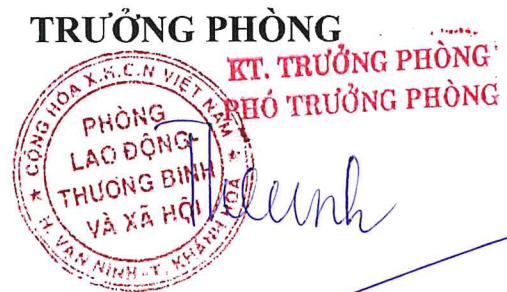 TRƯỞNG PHÒNG
KT. TRƯỞNG PHÒNG
PHÓ TRƯỞNG PHÒNG
CỘNG HÒA X.H.C.N VIỆT NAM
PHÒNG
LAO ĐỘNG-
THƯƠNG BINH
VÀ XÃ HỘI
H. VẠN NINH - T. KHÁNH HÒA